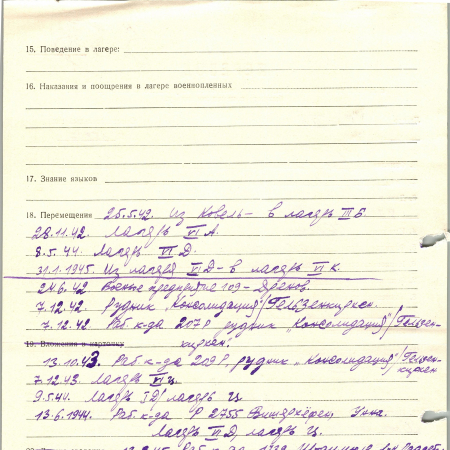 15. Поведение в лагере:
16. Наказания и поощрения в лагере военнопленных
17. Знание языков
18. Перемещения 25.5.42. Из Ковель - в лагерь III Б.
28.11.42. Лагерь VI А.
8.5.44. Лагерь VI Д.
31.1.1945. Из лагеря VI Д - в лагерь VI К.
24.6.42 Военное предприятие 109 -
7.12.42. Рудник „Консолидация"/Гельзенкирхен.
7.12.42 Раб к-да 207 Р рудник „Консолидация"/Гельзен-
19. Вложения в карточку кирхен.
13.10.43. Раб к-да 209 Р. рудник „Консолидация"/Гельзен-
кирхен
7.12.43. Лагерь VI ц.
9.5.44. Лагерь ц
13.6.1944. Раб к-да Р 2755 Унна.
Лагерь VI Д, лагерь ц.